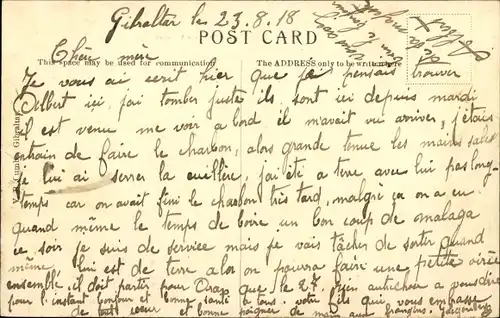 Gibraltar le 23.8.18
POST CARD
This space may be used for communication
The ADDRESS only to be written here
Chère mère
Je vous ai écrit hier que je pensais trouver
Albert ici, j'ai tomber juste ils sont ici depuis mardi
il est venue me voir a bord il m'avait vu arriver, j'étais
entrain de faire le charbon, alors grande tenue les mains sales
je lui ai serrer la cuillère, j'ai été a terre avec lui pas long-
temps car on avait fini le charbon très tard, malgré ça on a eu
quand même le temps de boire un bon coup de malaga
ce soir je suis de service mais je vais tâcher de sortir quand
même, lui est de terre alor on pourra faire une petite virée
ensemble, il doit partir pour Oran que le 27. Rien autre chose a vous dire
pour l'instant bonjour et bonne santé a tous. votre fils qui vous embrasse
de tout cœur et bonne poigner de main aux frangins.